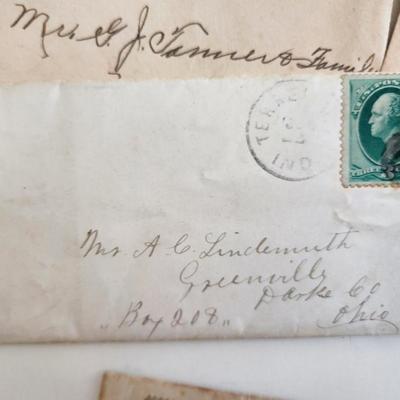 Mrs. G. J. Tanner & Family
TERRE
IND
U.S. POST
THREE
Mr. A. C. Lindemuth
Greenville
Darke Co
Ohio
„Box 208„